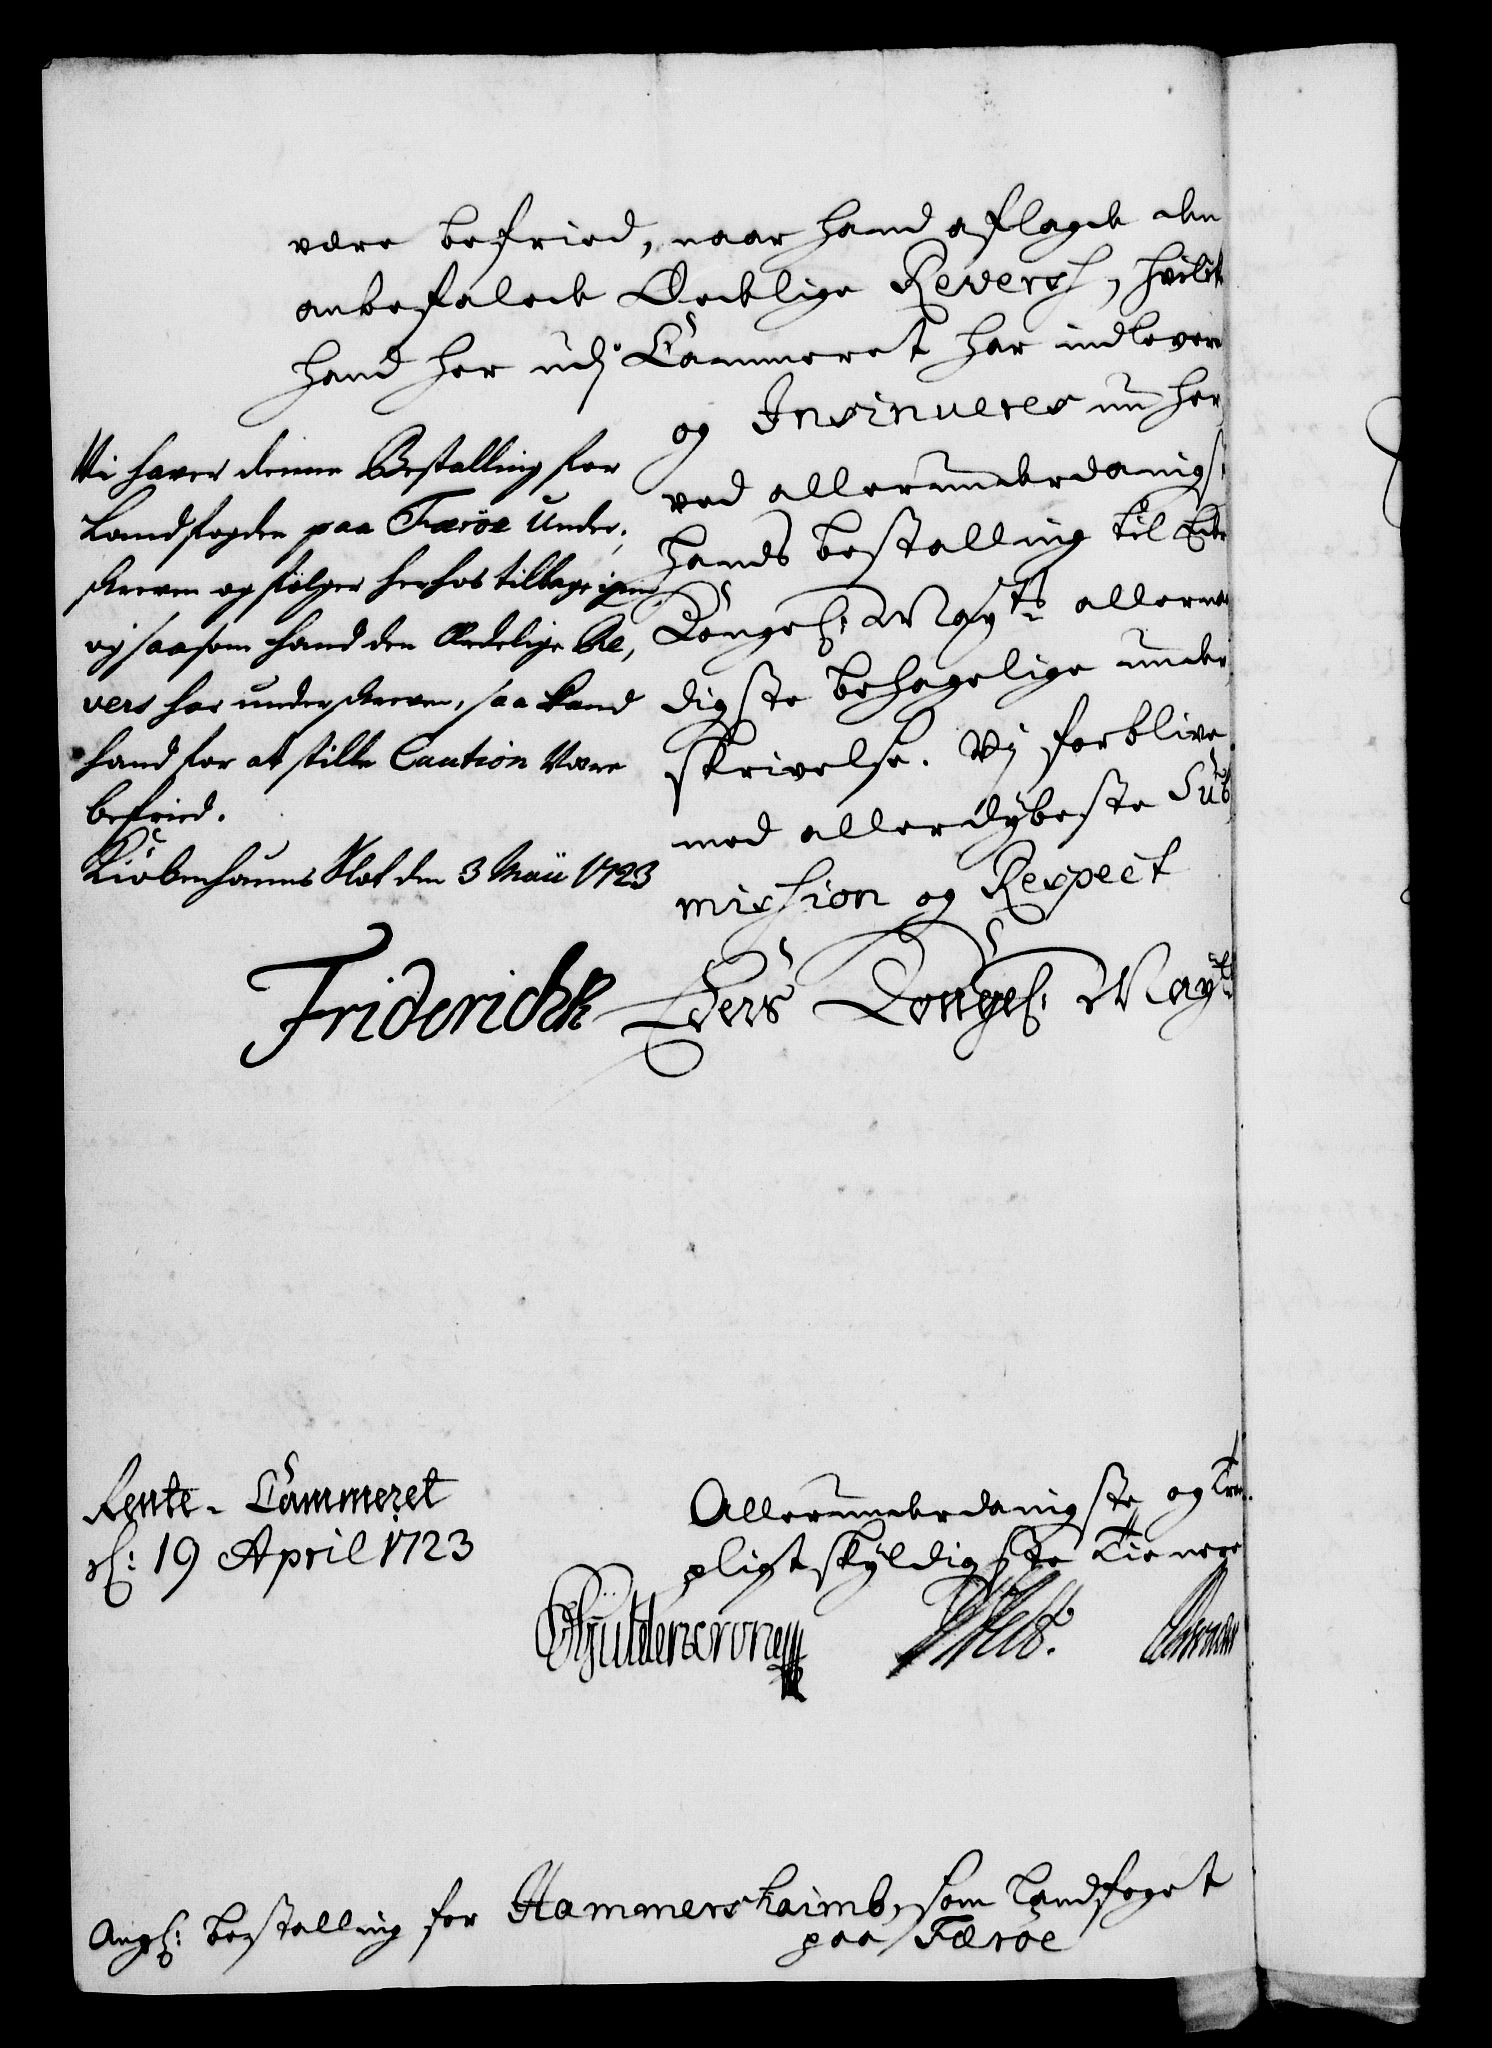 være befried, naar hand aflagde den
anbefalede Eedelige Reversh, hvilke
hand her udj Cammeret har indlever
og Insinueres nu her
ved allerunderdanigst
hands bestalling til Eders
Kongel: May:ts allernaa
digste behagelige under
skrivelse. Vj forblive
med allerdybeste Sub
mishion og Respect
Eders Kongel: May:ts
Vi haver denne Bestalling for
Landfogden paa Færöe Under,
skreven og følger herhos tilbage igien,
og saasom hand den Eedelige Re,
vers har underskreven, saa kand
hand for at stille Caution Være
befried.
Kiöbenhauns Slot den 3 Maii 1723
Friderich R
Rente-Cammeret
d: 19 April 1723
Allerunderdanigste og Troe
pligtskyldigste Tienere
Güldencrone
Angl: bestalling for Hammershaimb, som Landfoget
paa Færöe